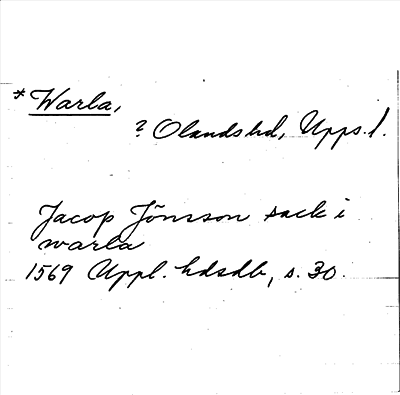 * Warla,
? Olandshd, Upps. l.
Jacop Jönsson sack i
warla
1569 Uppl. hdsdb, s. 30.